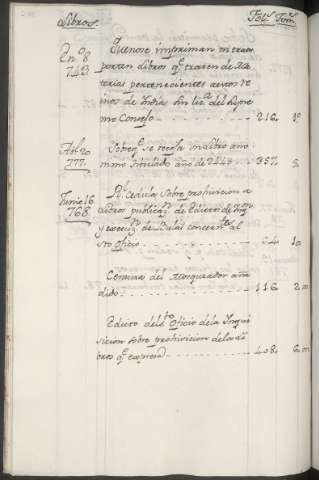 Libros.
Fols. Toms.
En.º 8
743
Que no se impriman ni trans
porten Libros q.e traten de Ma
terias pertenecientes a estos Re
inos de Indias sin liz.a del Supre
mo Consejo 216. 1º
Ab.l 20
777.
Sobre q.e se recoja un Libro ano
nimo titulado año de 2440. 357. 5
Junio 16
768
R.l Cedula sobre prohivicion a
Libros publicaz.n de Edictos de Ynq.n
y execuz.n de Bulas concern.tes al
S.to Oficio 24. 1º
Censura del Marquador aña
dido 116. 2º
Edicto del S.to Oficio de la Inqui
sicion sobre prohivicion de los Li
bros q.e expresa 408. 6.